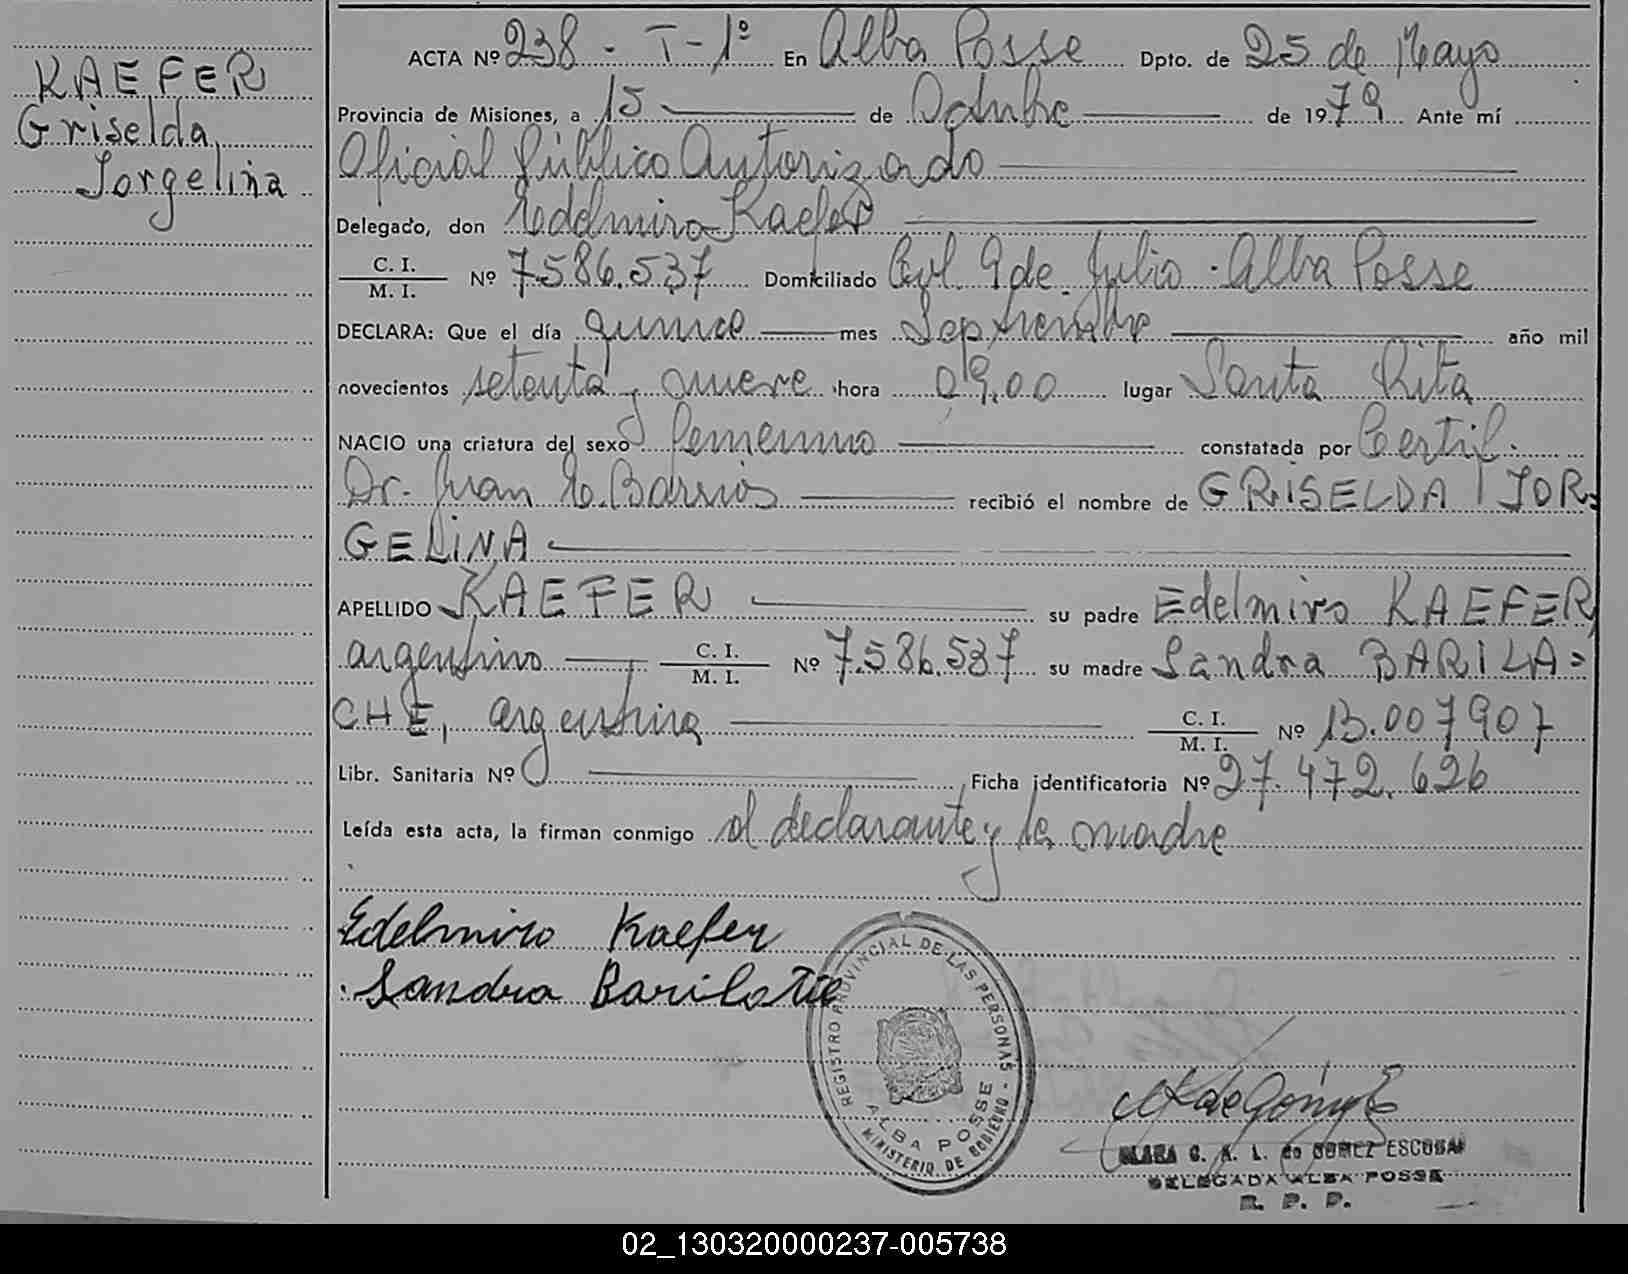 KAEFER
Griselda
Jorgelina
ACTA Nº 238 - T-1º En Alba Posse Dpto. de 25 de Mayo
Provincia de Misiones, a 15 de Octubre de 1979 Ante mí
Oficial Público Autorizado
Delegado, don Edelmiro Kaefer
C. I.
M. I. Nº 7.586.537 Domiciliado Col. 9 de Julio - Alba Posse
DECLARA: Que el día quince mes Septiembre año mil
novecientos setenta y nueve hora 09,00 lugar Santa Rita
NACIO una criatura del sexo femenino constatada por Certif.
Dr. Juan E. Barrios recibió el nombre de GRISELDA JOR=
GELINA
APELLIDO KAEFER su padre Edelmiro KAEFER,
argentino C. I. M. I. Nº 7.586.537 su madre Sandra BARILA=
CHE, argentina C. I. M. I. Nº 13.007907
Libr. Sanitaria Nº Ficha identificatoria Nº 27.472.626
Leída esta acta, la firman conmigo el declarante y la madre
Edelmiro Kaefer
Sandra
REGISTRO PROVINCIAL DE LAS PERSONAS
ALBA POSSE
MINISTERIO DE GOBIERNO
C. A. L. de GOMEZ ESCOBAR
DELEGADA ALBA POSSE
R. P. P.
02_130320000237-005738